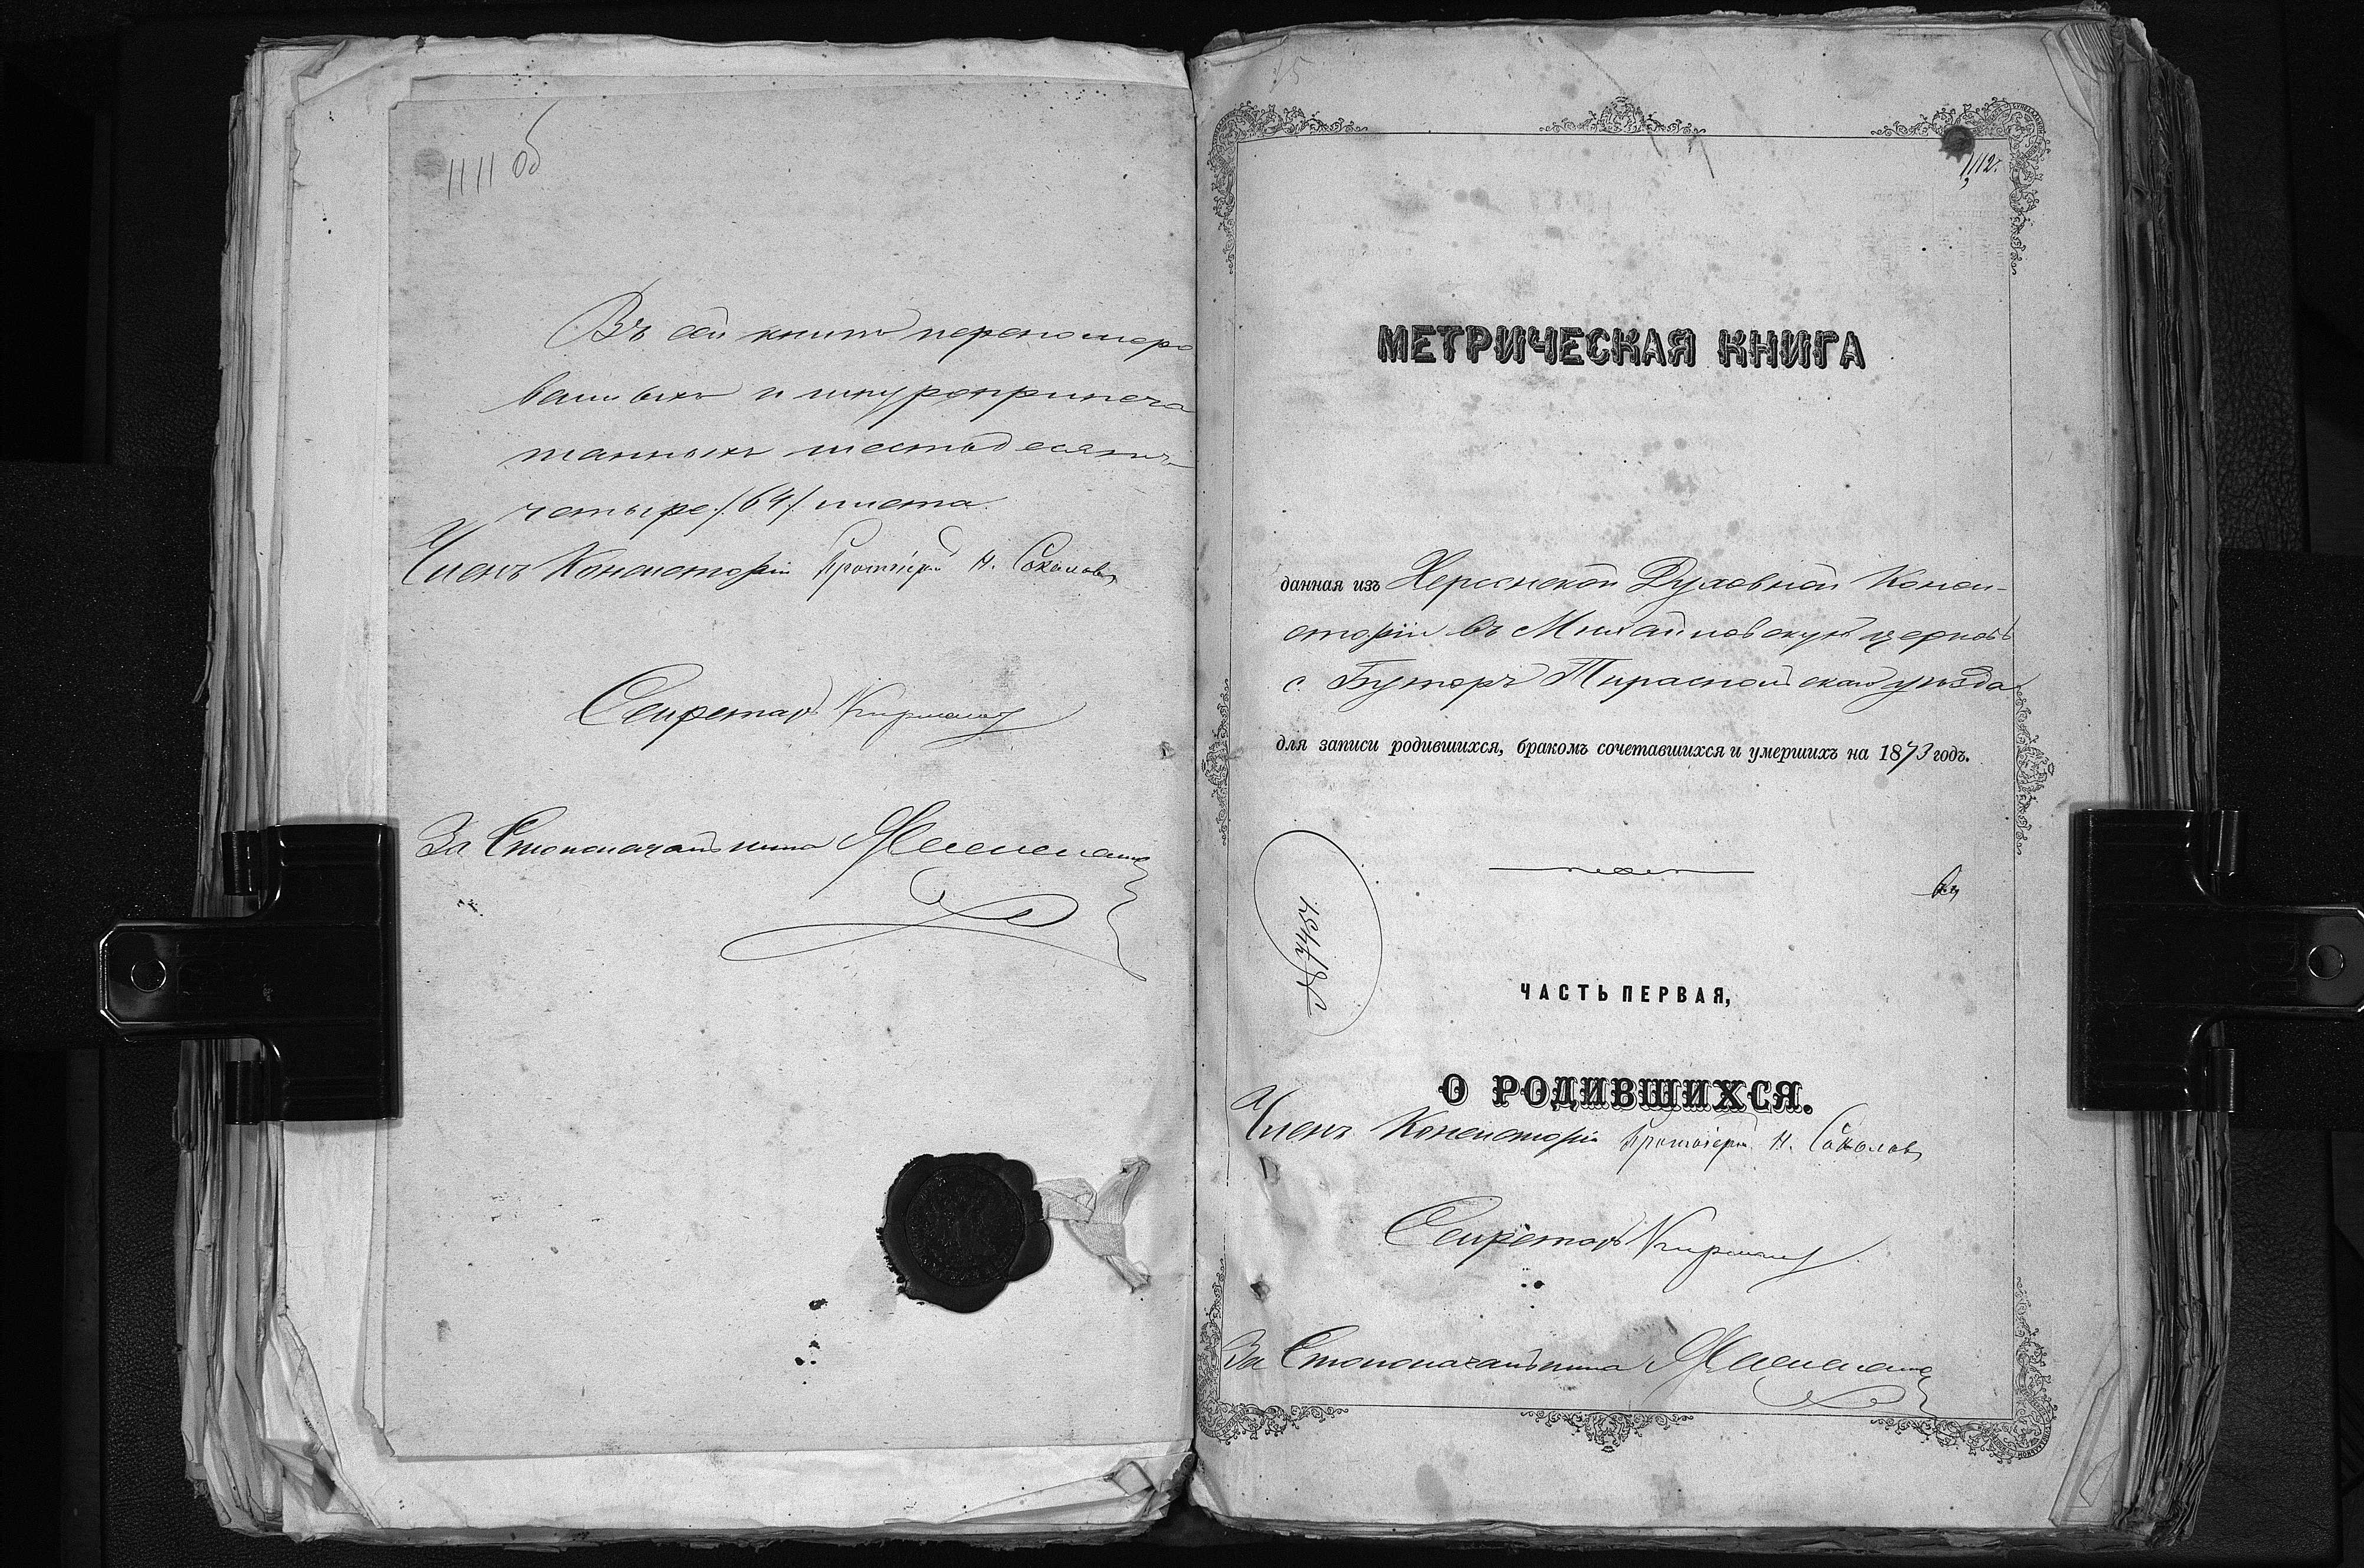 1111 об
Въ сей книгѣ перенумеро
ванныхъ и шнуроприпеча
танныхъ шестьдесятъ
четыре /64/ листа.
Членъ Консисторіи Протоіерей Н. Соколовъ
Секретарь
За Столоначальника
15
1112.
МЕТРИЧЕСКАЯ КНИГА
данная изъ Херсонской Духовной Конси-
сторіи въ Михайловскую церковь
с. Буторъ Тираспольскаго уѣзда
для записи родившихся, бракомъ сочетавшихся и умершихъ на 1873 годъ.
№ 7454.
ЧАСТЬ ПЕРВАЯ,
О РОДИВШИХСЯ.
Членъ Консисторіи Протоіерей Н. Соколовъ
Секретарь
За Столоначальника